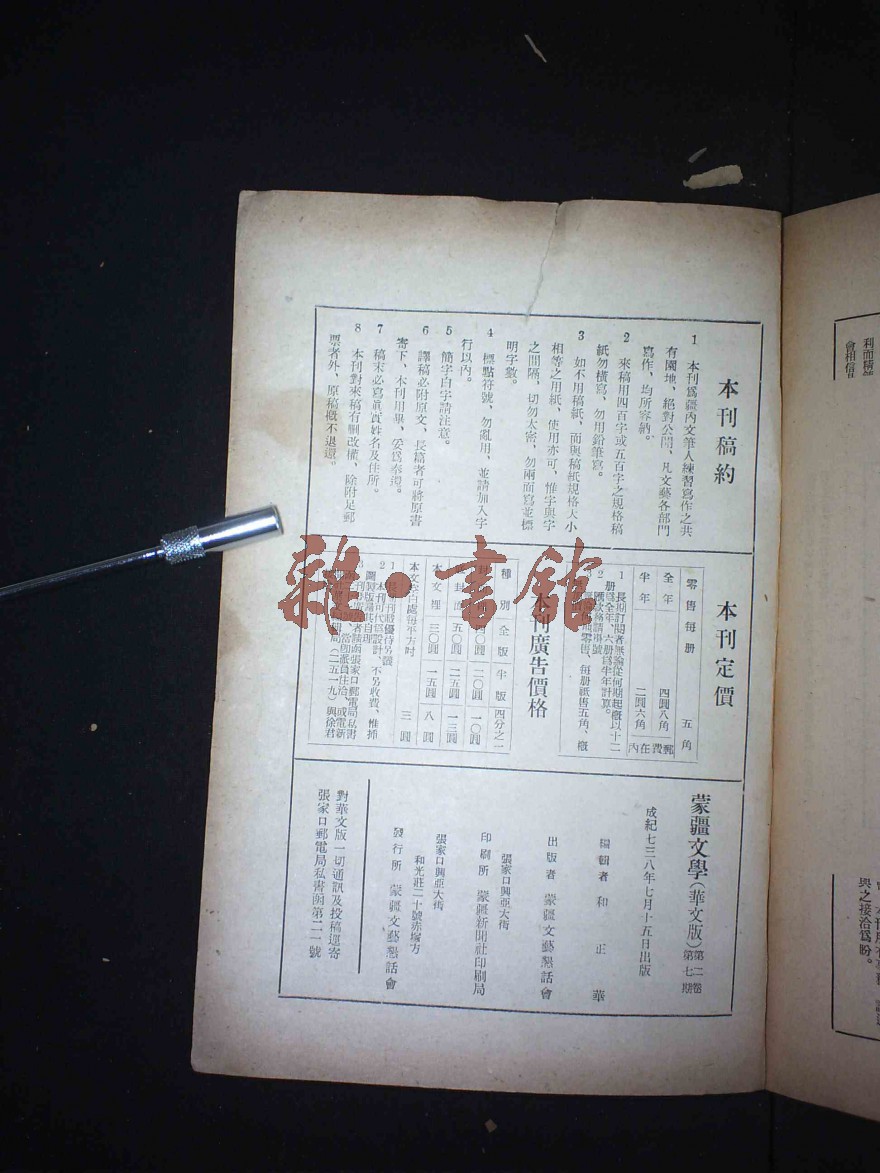 本刊稿約
1 本刊爲疆內文筆人練習寫作之共
有園地、絕對公開、凡文藝各部門
寫作、均所容納。
2 來稿用四百字或五百字之規格稿
紙勿橫寫、勿用鉛筆寫。
3 如不用稿紙、而與稿紙規格大小
相等之用紙、使用亦可、惟字與字
之間隔、切勿太密、勿兩面寫並標
明字數。
4 標點符號、勿亂用、並請加入字
行以內。
5 簡字白字請注意。
6 譯稿必附原文、長稿者可將原書
寄下、本刊用畢、妥爲奉還。
7 稿末必寫眞實姓名及住所。
8 本刊對來稿有刪改權、除附足郵
票者外、原稿槪不退還。
本刊定價
零售每册 五角
全年 四圓八角
半年 二圓六角
郵費在內
1 長期訂閱者無論從何期起槪以十二
册爲全年、六册爲半年計算。
2
零售、每册紙售五角、槪
本刊廣告價格
種別 全版 半版 四分之一
二〇圓 一〇圓
五〇圓 二五圓 一三圓
本文裡 三〇圓 一五圓 八圓
本文空白處每平方吋 三圓
1 長期刊載優待另議
2 本刊可代爲設計、不另收費、惟插
圖製版需其自理
張家口郵電局私書
(二五一九)與徐君
蒙疆文學(華文版)第二卷第七期
成紀七三八年七月十五日出版
編輯者 和正華
出版者 蒙疆文藝懇話會
張家口興亞大街
印刷所 蒙疆新聞社印刷局
張家口興亞大街
和光莊二十號赤塚方
發行所 蒙疆文藝懇話會
對華文版一切通訊及投稿逕寄
張家口郵電局私書函第二一號
利而精
會相信
與之接洽爲盼。
雜·書館